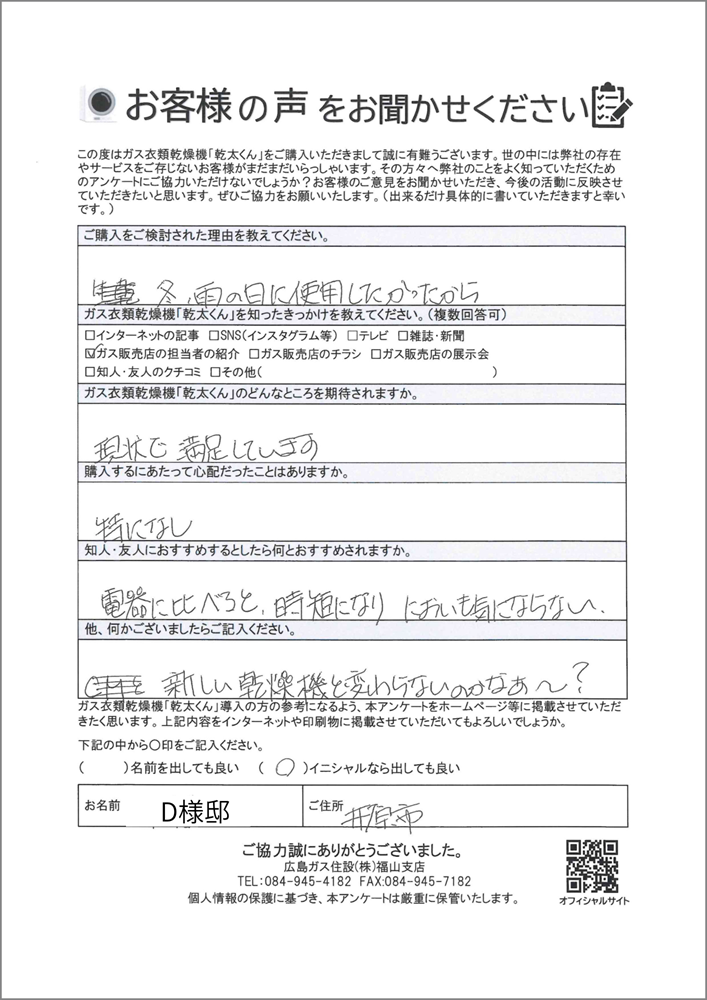 お客様の声をお聞かせください
この度はガス衣類乾燥機「乾太くん」をご購入いただきまして誠に有難うございます。世の中には弊社の存在
やサービスをご存じないお客様がまだまだいらっしゃいます。その方々へ弊社のことをよく知っていただくため
のアンケートにご協力いただけないでしょうか？お客様のご意見をお聞かせいただき、今後の活動に反映させ
ていただきたいと思います。ぜひご協力をお願いいたします。（出来るだけ具体的に書いていただきますと幸い
です。）
ご購入をご検討された理由を教えてください。
冬、雨の日に使用したかったから
ガス衣類乾燥機「乾太くん」を知ったきっかけを教えてください。（複数回答可）
□インターネットの記事 □SNS（インスタグラム等） □テレビ □雑誌・新聞
☑ガス販売店の担当者の紹介 □ガス販売店のチラシ □ガス販売店の展示会
□知人・友人のクチコミ □その他（ ）
ガス衣類乾燥機「乾太くん」のどんなところを期待されますか。
現状で満足しています
購入するにあたって心配だったことはありますか。
特になし
知人・友人におすすめするとしたら何とおすすめされますか。
電器に比べると、時短になり においも気にならない、
他、何かございましたらご記入ください。
新しい乾燥機と変わらないのかなぁ〜？
ガス衣類乾燥機「乾太くん」導入の方の参考になるよう、本アンケートをホームページ等に掲載させていただ
きたく思います。上記内容をインターネットや印刷物に掲載させていただいてもよろしいでしょうか。
下記の中から〇印をご記入ください。
（ ）名前を出しても良い （ 〇 ）イニシャルなら出しても良い
お名前 D様邸 ご住所 井原市
ご協力誠にありがとうございました。
広島ガス住設（株）福山支店
TEL:084-945-4182 FAX:084-945-7182
個人情報の保護に基づき、本アンケートは厳重に保管いたします。
オフィシャルサイト